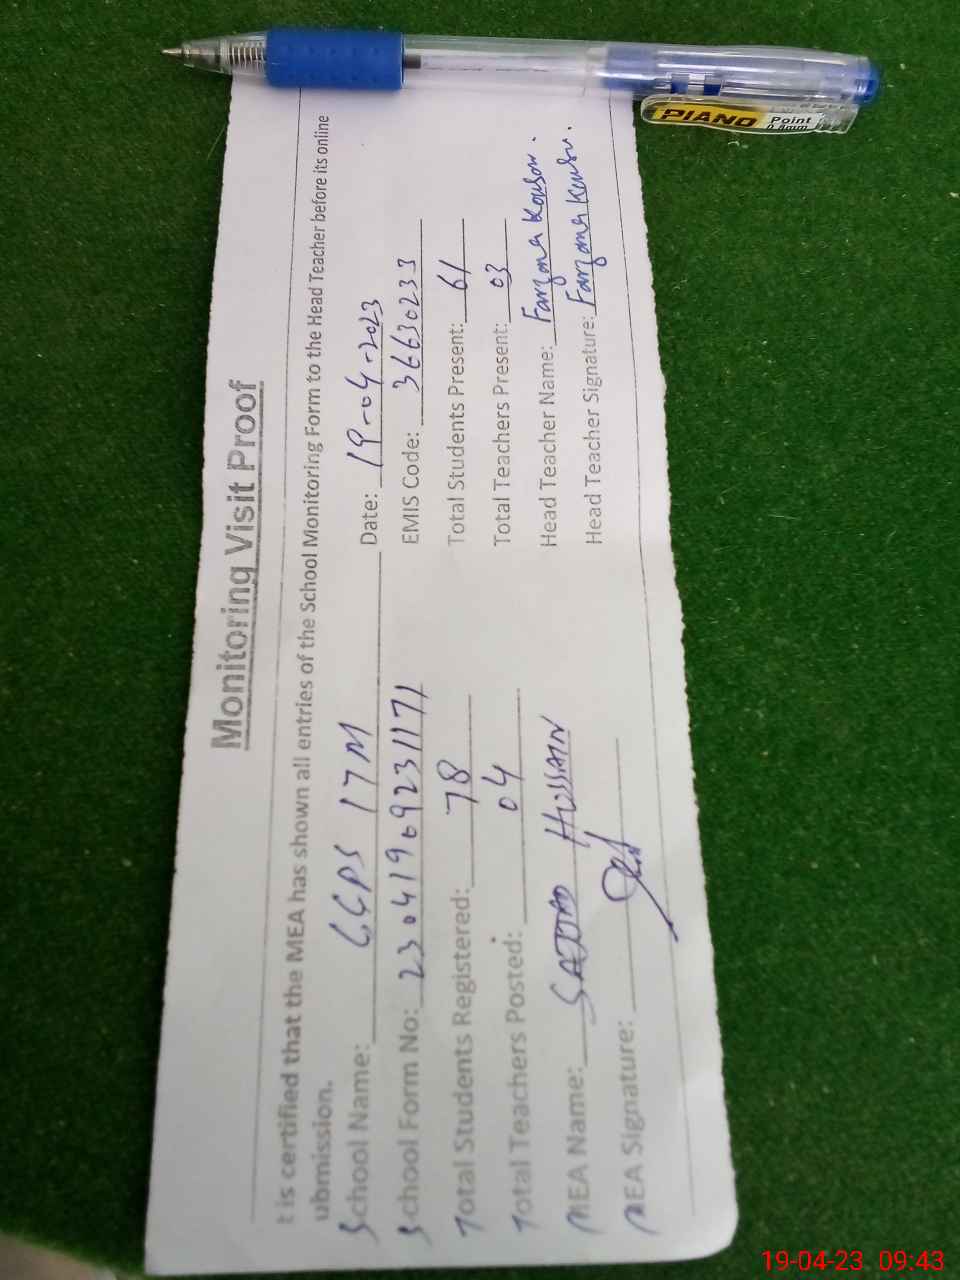 Monitoring Visit Proof
t is certified that the MEA has shown all entries of the School Monitoring Form to the Head Teacher before its online
ubmission.
School Name: GGPS 17M Date: 19-04-2023
School Form No: 230419692311171 EMIS Code: 36630233
Total Students Registered: 78 Total Students Present: 61
Total Teachers Posted: 04 Total Teachers Present: 03
MEA Name: SAJJAD HUSSAIN Head Teacher Name: Farzana Kousar.
MEA Signature: Head Teacher Signature: Farzana Kousar.
PIANO Point
0.8mm
19-04-23 09:43